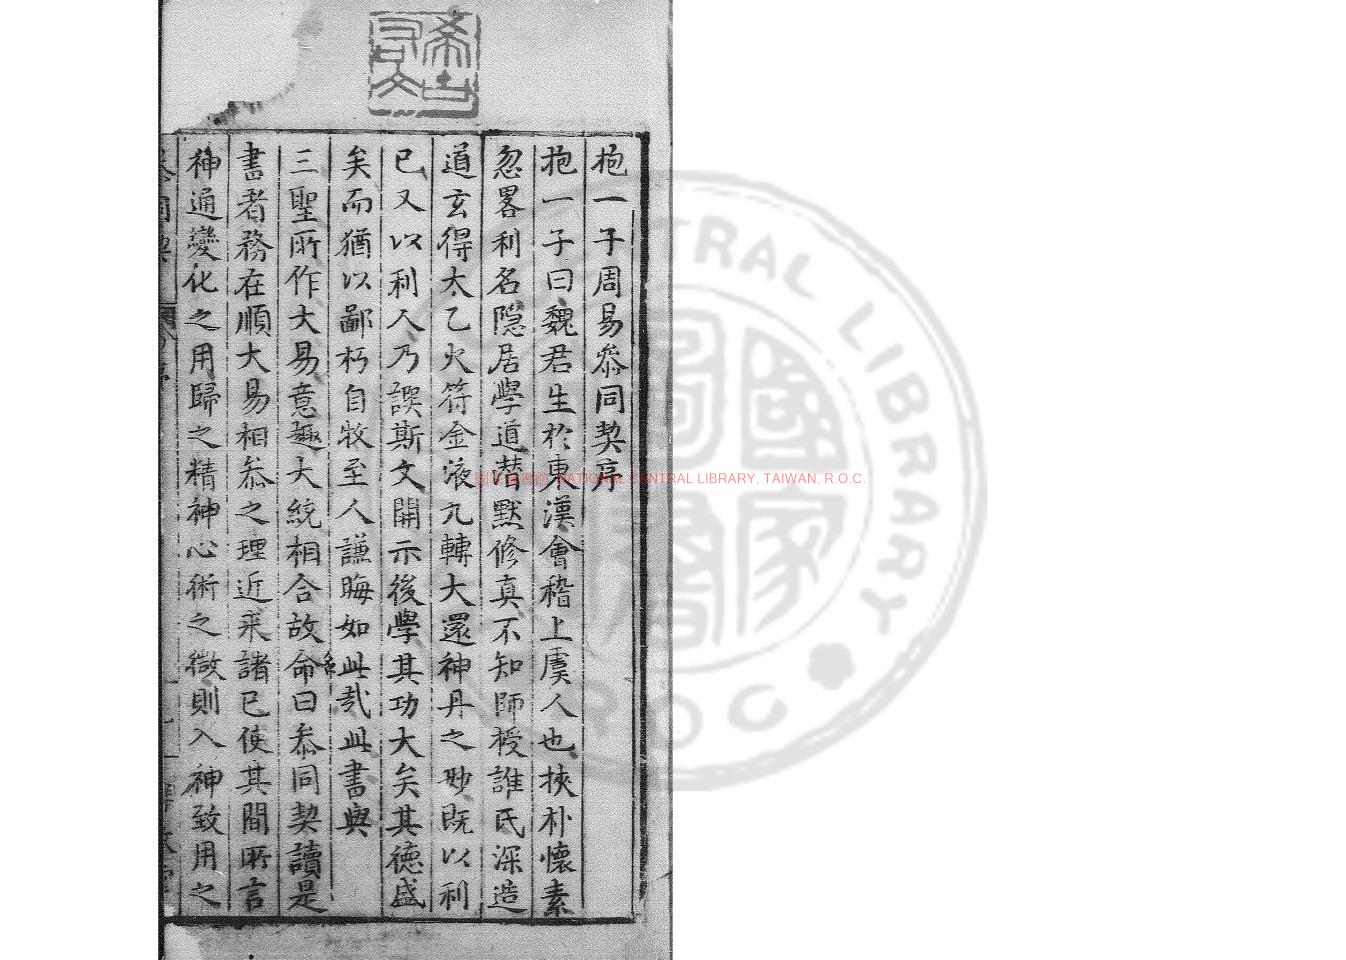 抱一子周易叅同契序
抱一子曰魏君生於東漢會稽上虞人也挾朴懷素
忽畧利名隱居學道潜默修真不知師授誰氏深造
道玄得太乙火符金液九轉大還神丹之妙既以利
已又以利人乃誤斯文開示後學其功大矣其德盛
矣而猶以鄙朽自牧至人謙晦如此哉此書與
三聖所作大易意趣大統相合故命曰叅同契讀是
書者務在順大易相叅之理近來諸已使其間所言
神通變化之用歸之精神心術之微則入神致用之
希古
右文
NATIONAL CENTRAL LIBRARY, TAIWAN, R.O.C.
CENTRAL LIBRARY
R.O.C
國家圖書館